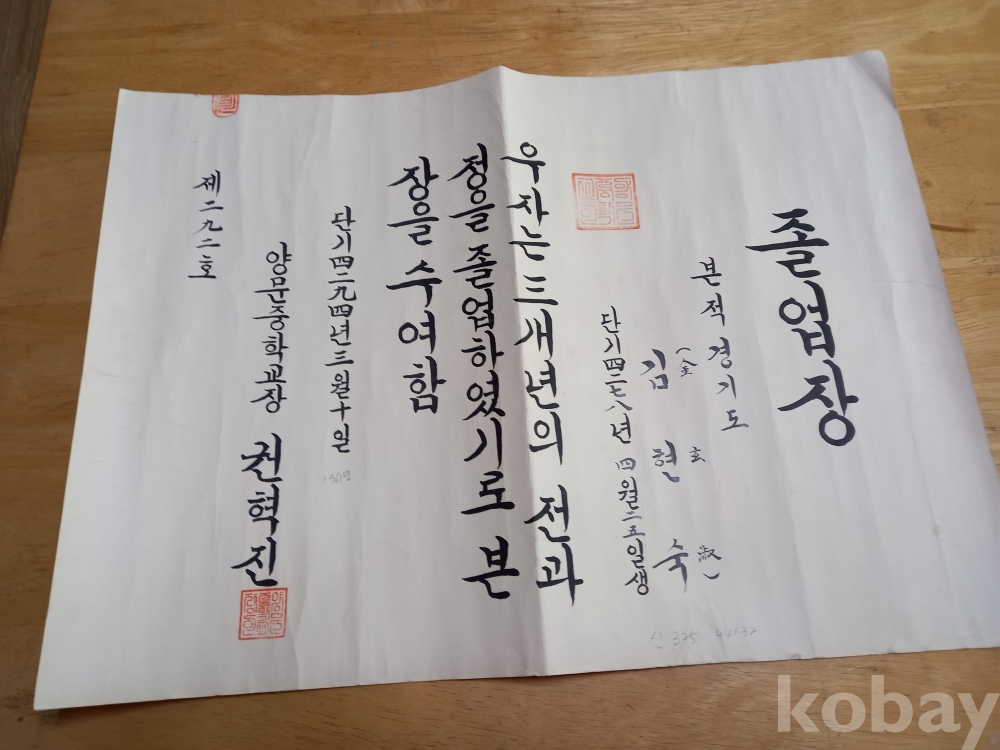 졸업장
본적 경기도
김현숙
(金玄淑)
단기四二七八년 四월二五일생
우자는 三개년의 전과
정을 졸업하였기로 본
장을 수여함
단기四二九四년三월十일
1961년
양문중학교장 권혁진
제二九二호
신 325
kobay